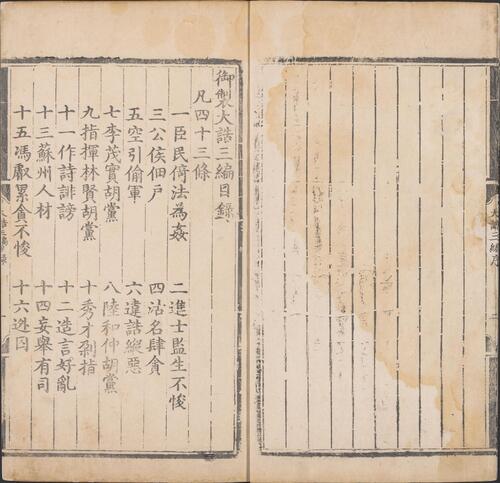 御製大誥三編目錄
凡四十三條
一臣民倚法為姦
二進士監生不悛
三公侯佃戶
四沽名肆貪
五空引偷軍
六違誥縱惡
七李茂實胡黨
八陸和仲胡黨
九指揮林賢胡黨
十秀才剁指
十一作詩誹謗
十二造言好亂
十三蘇州人材
十四妄舉有司
十五馮歠累貪不悛
十六逃囚
三編序